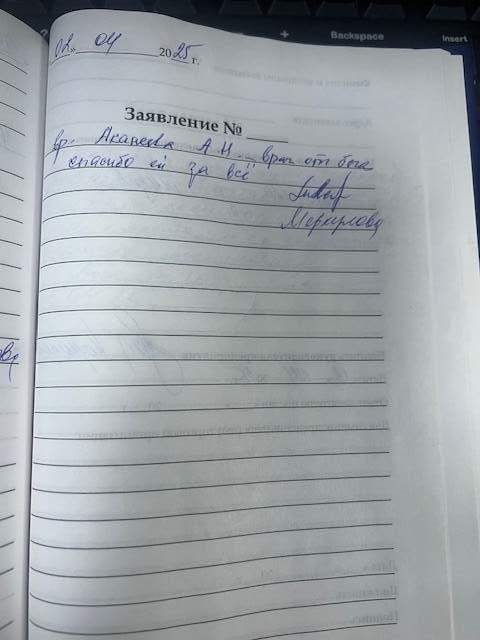 + Backspace Insert
02 04 2025 г.
Заявление №
вр. Аканеева А Н - врач от бога
спасибо ей за всё